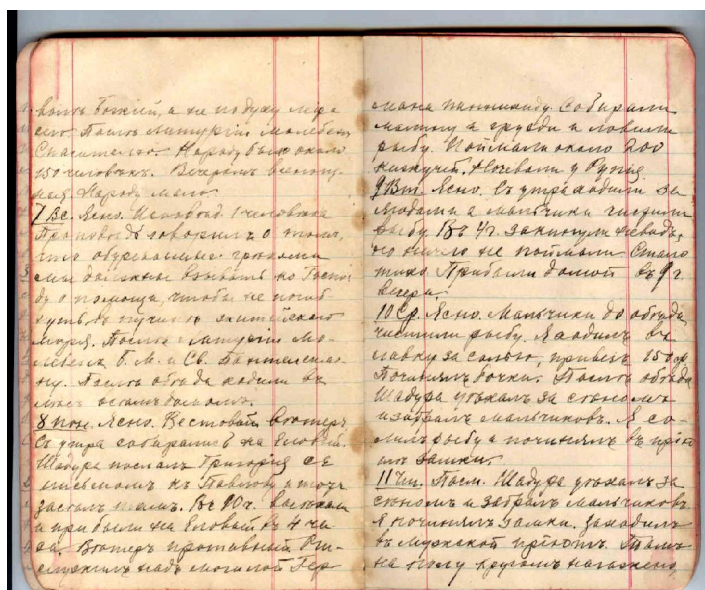 вомъ Божіей, а не по духу міра
сего. Послѣ литургіи молебенъ
Спасителю. Народу было около
150 человѣкъ. Вечеромъ всенощ-
ная. Народу мало.
7 Вс. Ясно. 1 человѣка
Проповѣдь говорилъ о томъ,
что обуреваемые грѣхами
мы должны взывать ко Госпо-
ду о помощи, чтобы не погиб-
нуть въ пучинѣ житейскаго
моря. Послѣ литургіи мо-
лебенъ Б. М. и Св. Пантелеимо-
ну. Послѣ обѣда ходили въ
лѣсъ
8 пон. Ясно. Вестовый вѣтеръ
Съ утра собирались на Еловый.
Шадура послалъ Григорія съ
письмомъ къ Павлову и тотъ
засталъ тамъ. Въ 10 ч. выѣхали
и прибыли на Еловый въ 4 ча-
са. Вѣтеръ противный. От-
служилъ надъ могилой Гер-
мана панихиду. Собирали
малину и грузди и ловили
рыбу. Поймали около 200
кижучей. Ночевали у
9 Вт. Ясно. Съ утра ходили за
ягодами а мальчики чистили
рыбу. Закинули неводъ,
но ничего не поймали. Стало
тихо. Прибыли домой въ 9 ч.
вечера.
10 Ср. Ясно. Мальчики до обѣда
чистили рыбу. Я ходилъ въ
лавку за солью, привезъ 150 ф.
Починялъ бочки. Послѣ обѣда
Шадура уѣхалъ за сѣномъ
и забралъ мальчиковъ. Я со-
лилъ рыбу и починялъ въ прію-
тѣ замки.
11 Чт. Пасм. Шадура уѣхалъ за
сѣномъ и забралъ мальчиковъ.
Я починялъ замки. Заходилъ
въ мужской пріютъ. Тамъ
на полу кругомъ нагажено,